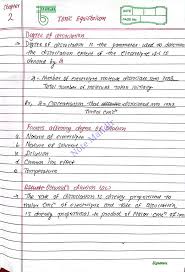 Chapter
2
DATE
PAGE NO.
Ionic Equilibrium
Degree of dissociation
→ Degree of dissociation is the parameter used to determine
the dissociation extent of the electrolyte it is
denoted by
= Number of electrolyte molecule dissociated into ions
Total number of molecules taken initially
= Concentration that dissociated into ions
Initial conc
Factors affecting degree of
Nature of
Nature of solvent
Dilution
Common ion effect
Temperature
Ostwald's dilution law
→ The rate of dissociation is directly proportional to
molar conc of electrolyte and rate of association
is directly proportional to product of molar conc of
Note Mahal
Signature